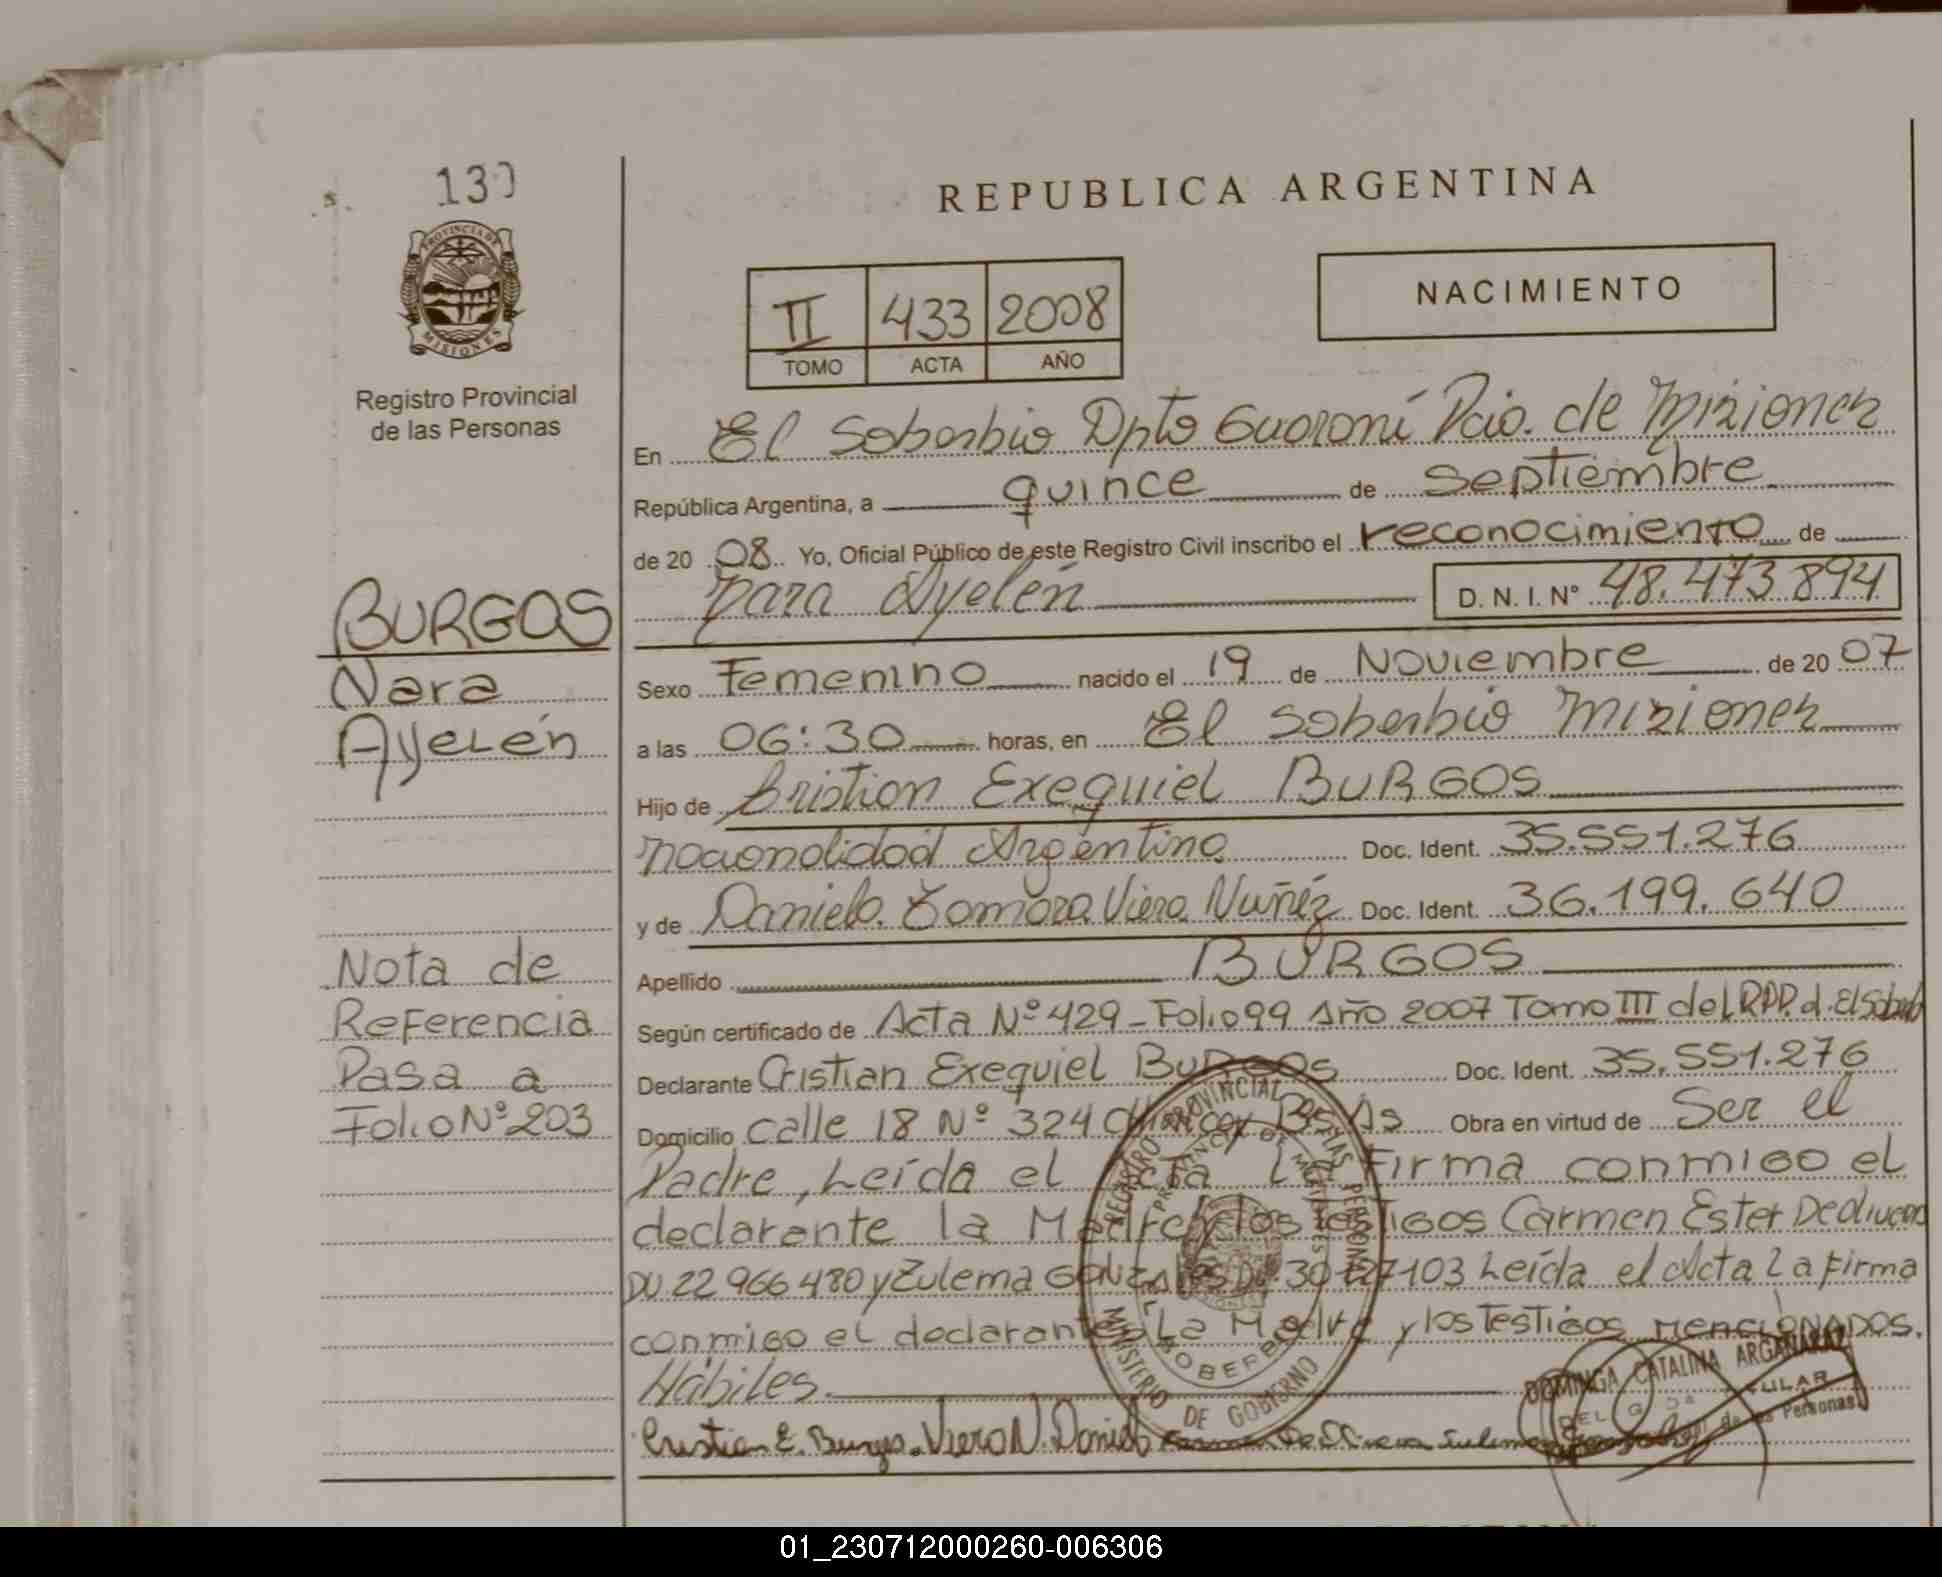 130
REPUBLICA ARGENTINA
PROVINCIA DE
MISIONES
Registro Provincial
de las Personas
II 433 2008
TOMO ACTA AÑO
NACIMIENTO
En El Soberbio Dpto Guaraní Pcia. de Misiones
República Argentina, a quince de Septiembre
de 20 08 Yo, Oficial Público de este Registro Civil inscribo el reconocimiento de
Nara Ayelén D. N. I. Nº 48.473.894
BURGOS
Nara
Ayelén
Sexo Femenino nacido el 19 de Noviembre de 20 07
a las 06:30 horas, en El Soberbio Misiones
Hijo de Cristian Exequiel BURGOS
nacionalidad Argentina Doc. Ident. 35.551.276
y de Daniela Zamara Viera Nuñéz Doc. Ident. 36.199.640
Apellido BURGOS
Nota de
Referencia
Pasa a
Folio Nº 203
Según certificado de Acta Nº 429 - Folio 99 Año 2007 Tomo III del RPP. d. El Soberb
Declarante Cristian Exequiel BURGOS Doc. Ident. 35.551.276
Domicilio calle 18 Nº 324 Bs As Obra en virtud de Ser el
Padre, Leída el Acta La Firma conmigo el
declarante la Madre y los testigos Carmen Ester
DU 22 966 480 y Zulema Leída el Acta La firma
conmigo el declarante, La Madre y los Testigos MENCIONADOS.
Hábiles.
Cristian E. Burgos. Viera N. Daniela
REGISTRO PROVINCIAL DE LAS PERSONAS
PROVINCIA DE MISIONES
EL SOBERBIO
MINISTERIO DE GOBIERNO
DOMINGA CATALINA ARGAÑARAZ
TULAR
de las Personas
01_230712000260-006306